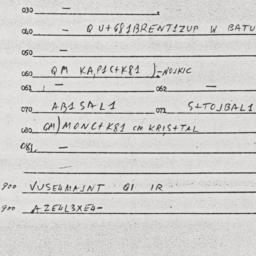 030 —
040 — QU+G81BRENT1ZUP W BATU
050 —
060 QM KAP1C+K81 )-NOJKIC
061 — 062 —
070 AB1SAL1 072 S+TOJBAL1
080 GM)MONC+K81 CM KRIS+TAL
081 —
900 VUSE4MAJNT QI IR
900 AZE4L3XE4-